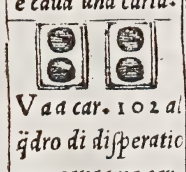 e caua una carta.
Vaa car. 102 al
q̃dro di diſperatio